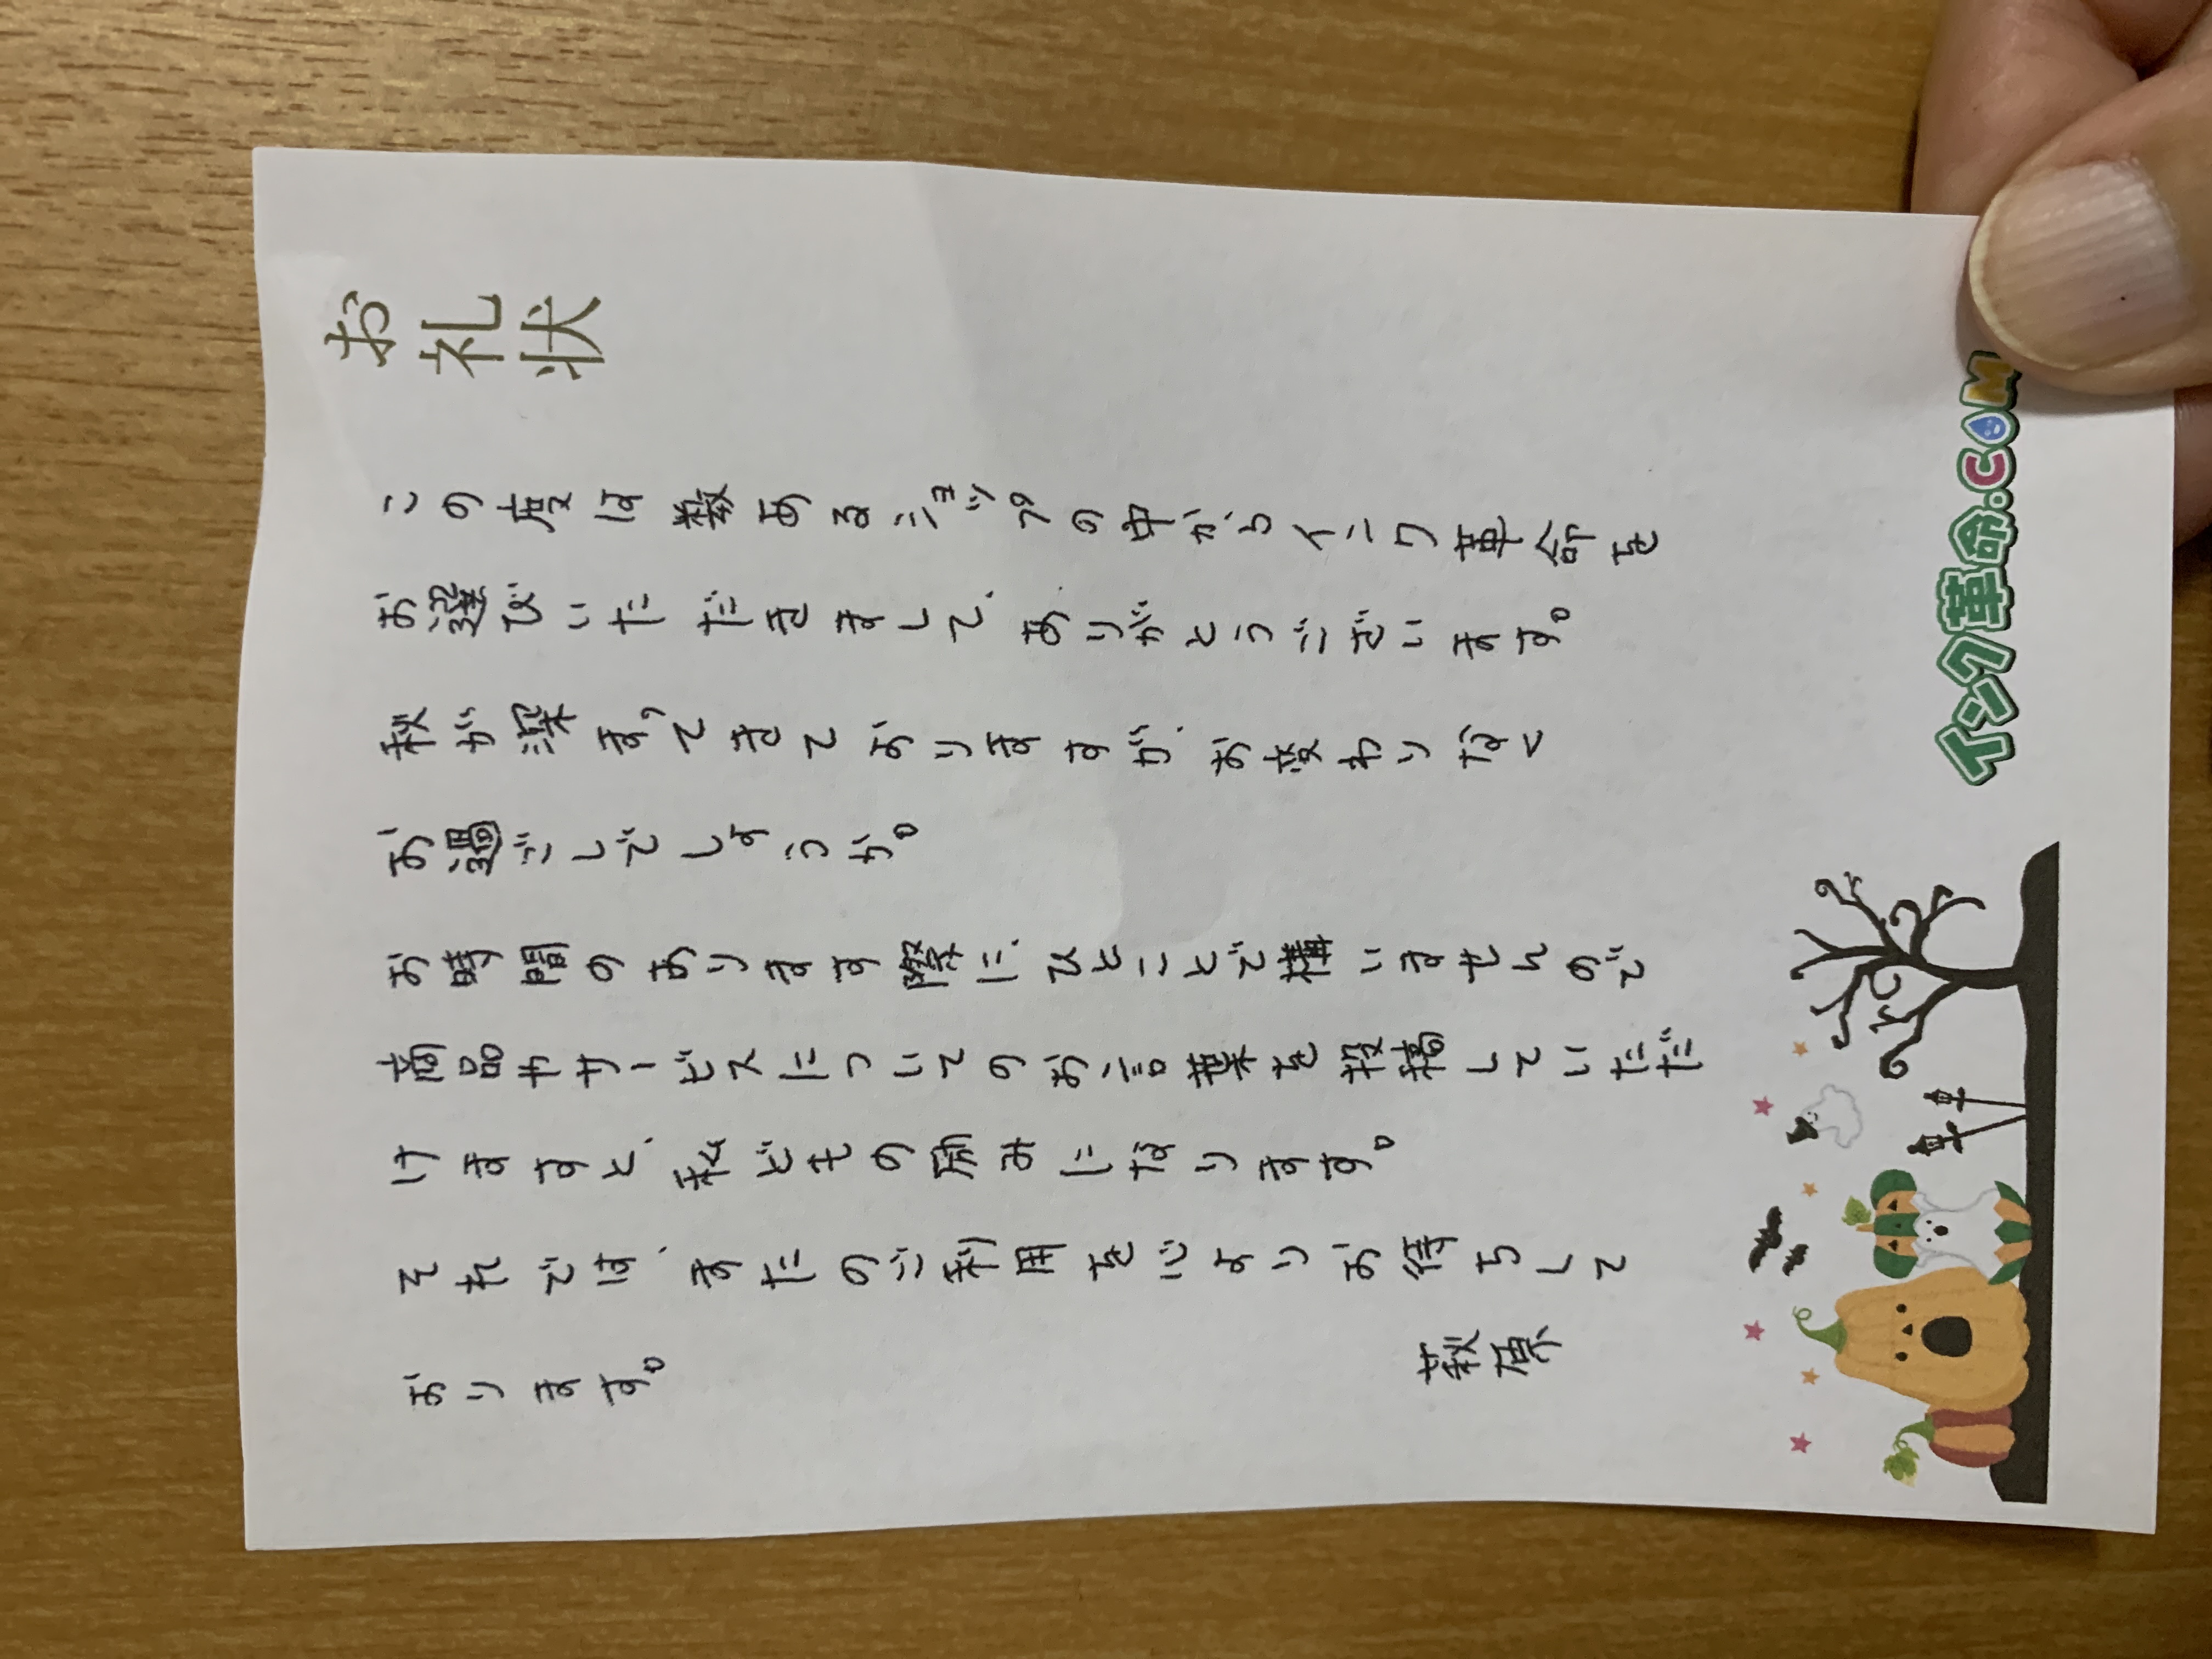 お礼状
この度は数あるショップの中からインク革命を
お選びいただきまして、ありがとうございます。
秋が深まってきておりますが、お変わりなく
お過ごしでしょうか。
お時間のあります際に、ひとことで構いませんので
商品やサービスについてのお言葉を投稿していただ
けますと、私どもの励みになります。
それでは、またのご利用を心よりお待ちして
おります。
萩原
インク革命.COM